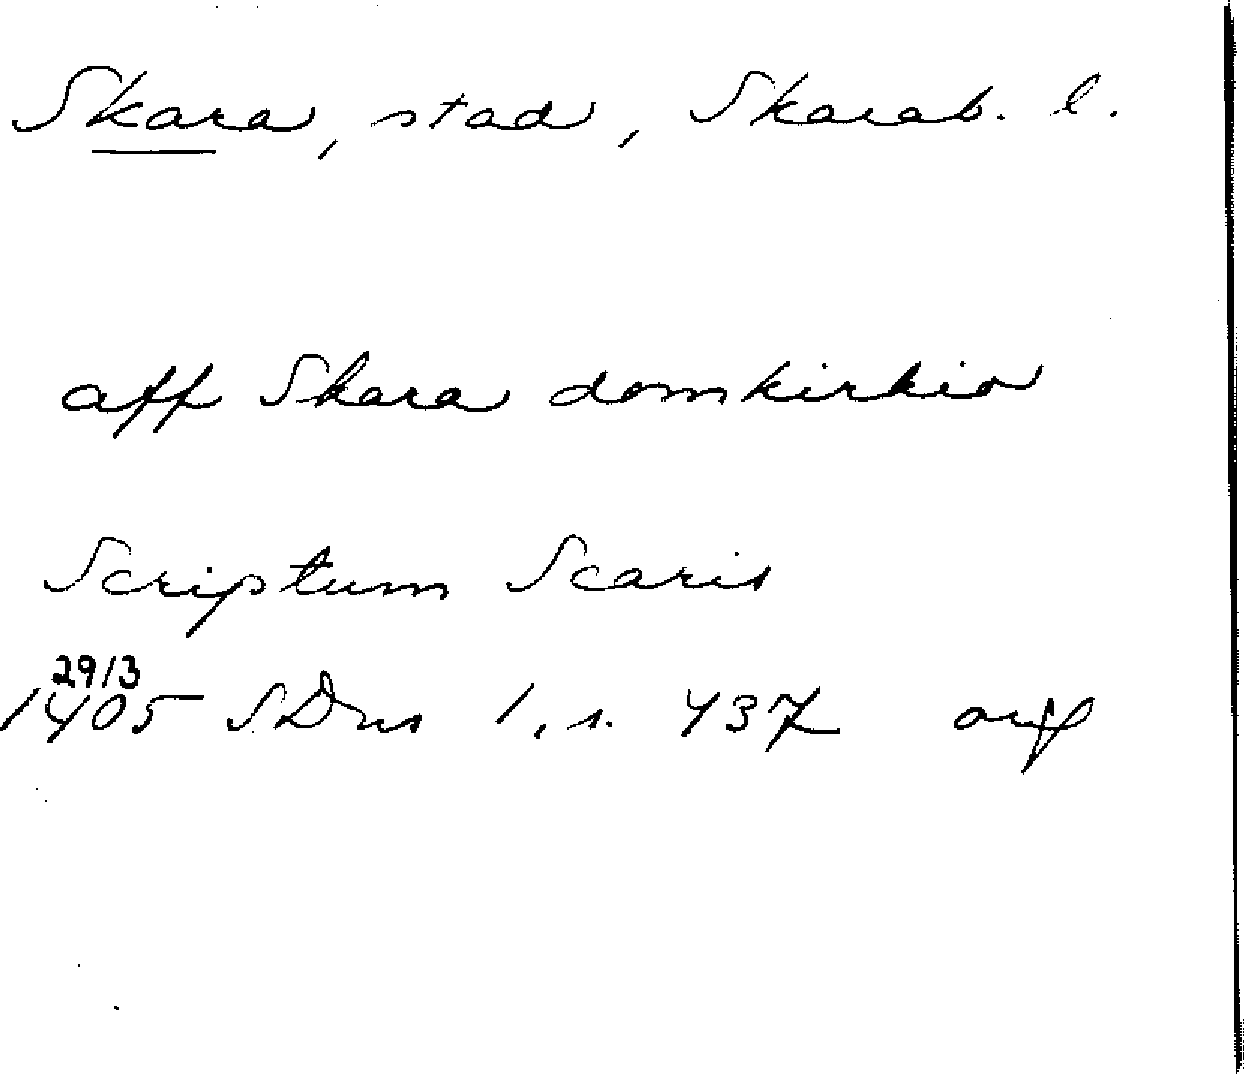 Skara, stad, Skarab. l.
aff Skara domkirkio
Scriptum Scaris
29/3
1405 SDns 1, s. 437 orig